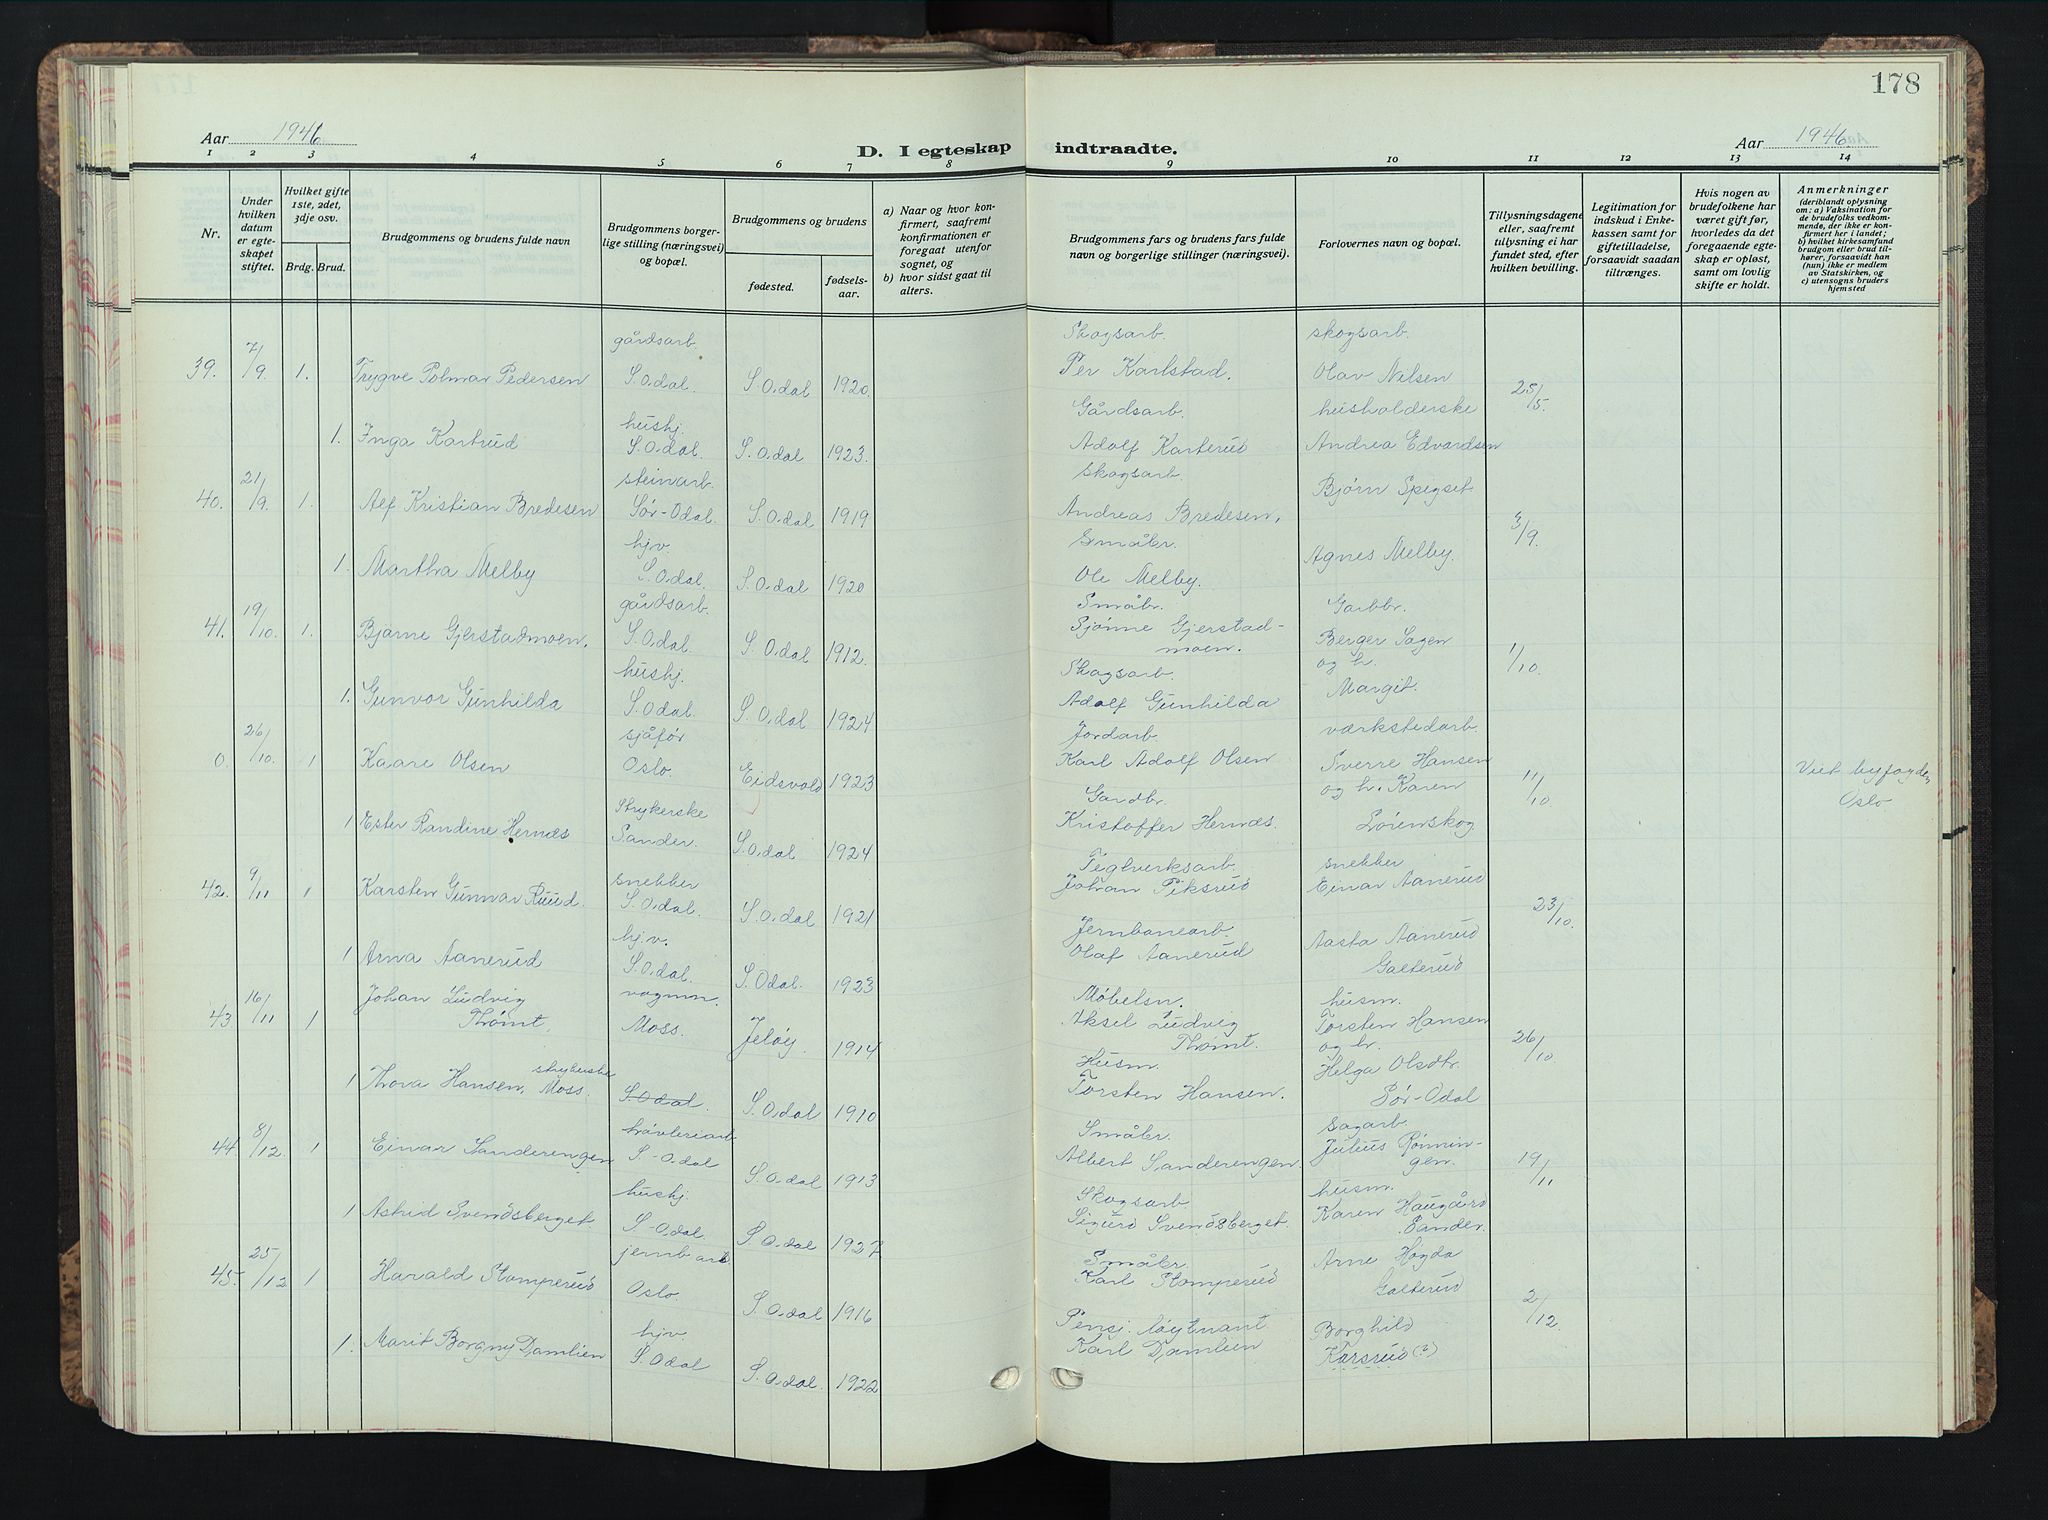 178
Aar 1946
D. I egteskap indtraadte.
Aar 1946
1 2 3 4 5 6 7 8 9 10 11 12 13 14
Nr.
Under hvilken datum er egteskapet stiftet.
Hvilket gifte 1ste, 2det, 3dje osv.
Brdg. Brud.
Brudgommens og brudens fulde navn
Brudgommens borgerlige stilling (næringsvei) og bopæl.
Brudgommens og brudens
fødested.
fødselsaar.
a) Naar og hvor konfirmert, saafremt konfirmationen er foregaat utenfor sognet, og
b) hvor sidst gaat til alters.
Brudgommens fars og brudens fars fulde navn og borgerlige stillinger (næringsvei).
Forlovernes navn og bopæl.
Tillysningsdagene eller, saafremt tillysning ei har fundet sted, efter hvilken bevilling.
Legitimation for indskud i Enkekassen samt for giftetilladelse, forsaavidt saadan tiltrænges.
Hvis nogen av brudefolkene har været gift før, hvorledes da det foregaaende egteskap er opløst, samt om lovlig skifte er holdt.
Anmerkninger (deriblandt oplysning om: a) Vaksination for de brudefolks vedkommende, der ikke er konfirmert her i landet; b) hvilket kirkesamfund brudgom eller brud tilhører, forsaavidt han (hun) ikke er medlem av Statskirken, og c) utensogns bruders hjemsted
gårdsarb. Skogsarb. skogsarb.
39. 7/9. 1. Trygve Polmar Pedersen S. Odal S. Odal 1920. Per Karlstad. Olav Nilsen 25/5.
hushj. Gårdsarb. husholderske
1. Inga Karterud S. Odal. S. Odal 1923. Adolf Karterud Andrea Edvardsen
steinarb. Skogsarb.
40. 21/9. 1. Alf Kristian Bredesen Sør-Odal. S. Odal 1919 Andreas Bredesen, Bjørn Spigset 3/9.
hjv. Småbr.
1. Martha Melby S. Odal. S. Odal 1920 Ole Melby. Agnes Melby.
gårdsarb. Småbr. Gardbr.
41. 19/10. 1. Bjarne Gjerstadmoen. S. Odal. S. Odal 1912. Sjønne Gjerstadmoen. Berger Sagen og h. 1/10.
hushj. Skogsarb. Margit.
1. Gunvor Gunhilda S. Odal S. Odal 1924 Adolf Gunhilda
sjåfør Jordarb. værkstedarb.
0. 26/10. 1 Kaare Olsen Oslo. Eidsvold 1923 Karl Adolf Olsen Sverre Hansen og h. Karen 11/10 Viet byfogden Oslo
Strykerske Gardbr.
1 Ester Randine Hernæs Sander. S. Odal 1924 Kristoffer Hernæs. Lørenskog
snekker Teglverksarb. snekker
42. 9/11 1 Karsten Gunnar Ruud. S. Odal. S. Odal 1921 Johan Piksrud Einar Aanerud 23/10.
hjv. Jernbanearb.
1 Arna Aanerud S. Odal. S. Odal. 1923 Olaf Aanerud Aasta Aanerud Galterud
vognm. Møbelsn. husm.
43 16/11 1 Johan Ludvig Thømt, Moss. Jeløy 1914 Aksel Ludvig Thømt. Torsten Hansen og h. 26/10.
strykerske Husm. Helga Olsdtr.
1 Thora Hansen, Moss. S. Odal. S. Odal 1910 Torsten Hansen. Sør-Odal
høvleriarb Småbr. sagarb.
44 8/12. 1 Einar Sanderengen S-Odal S. Odal 1913 Albert Sanderengen. Julius Rønningen. 19/11
hushj. Skogsarb. husm.
1 Astrid Svendsberget. S-Odal S. Odal 1927 Sigurd Svendsberget. Karen Haugård Sander.
jernb arb Småbr.
45. 25/12 1 Harald Stomperud Oslo. S. Odal 1916 Karl Stomperud Arne Høgda Galterud 2/12.
hjv. Pensj. løytnant
1. Marit Borgny Damlien S. Odal S. Odal. 1922 Karl Damlien Borghild Karsrud (?)